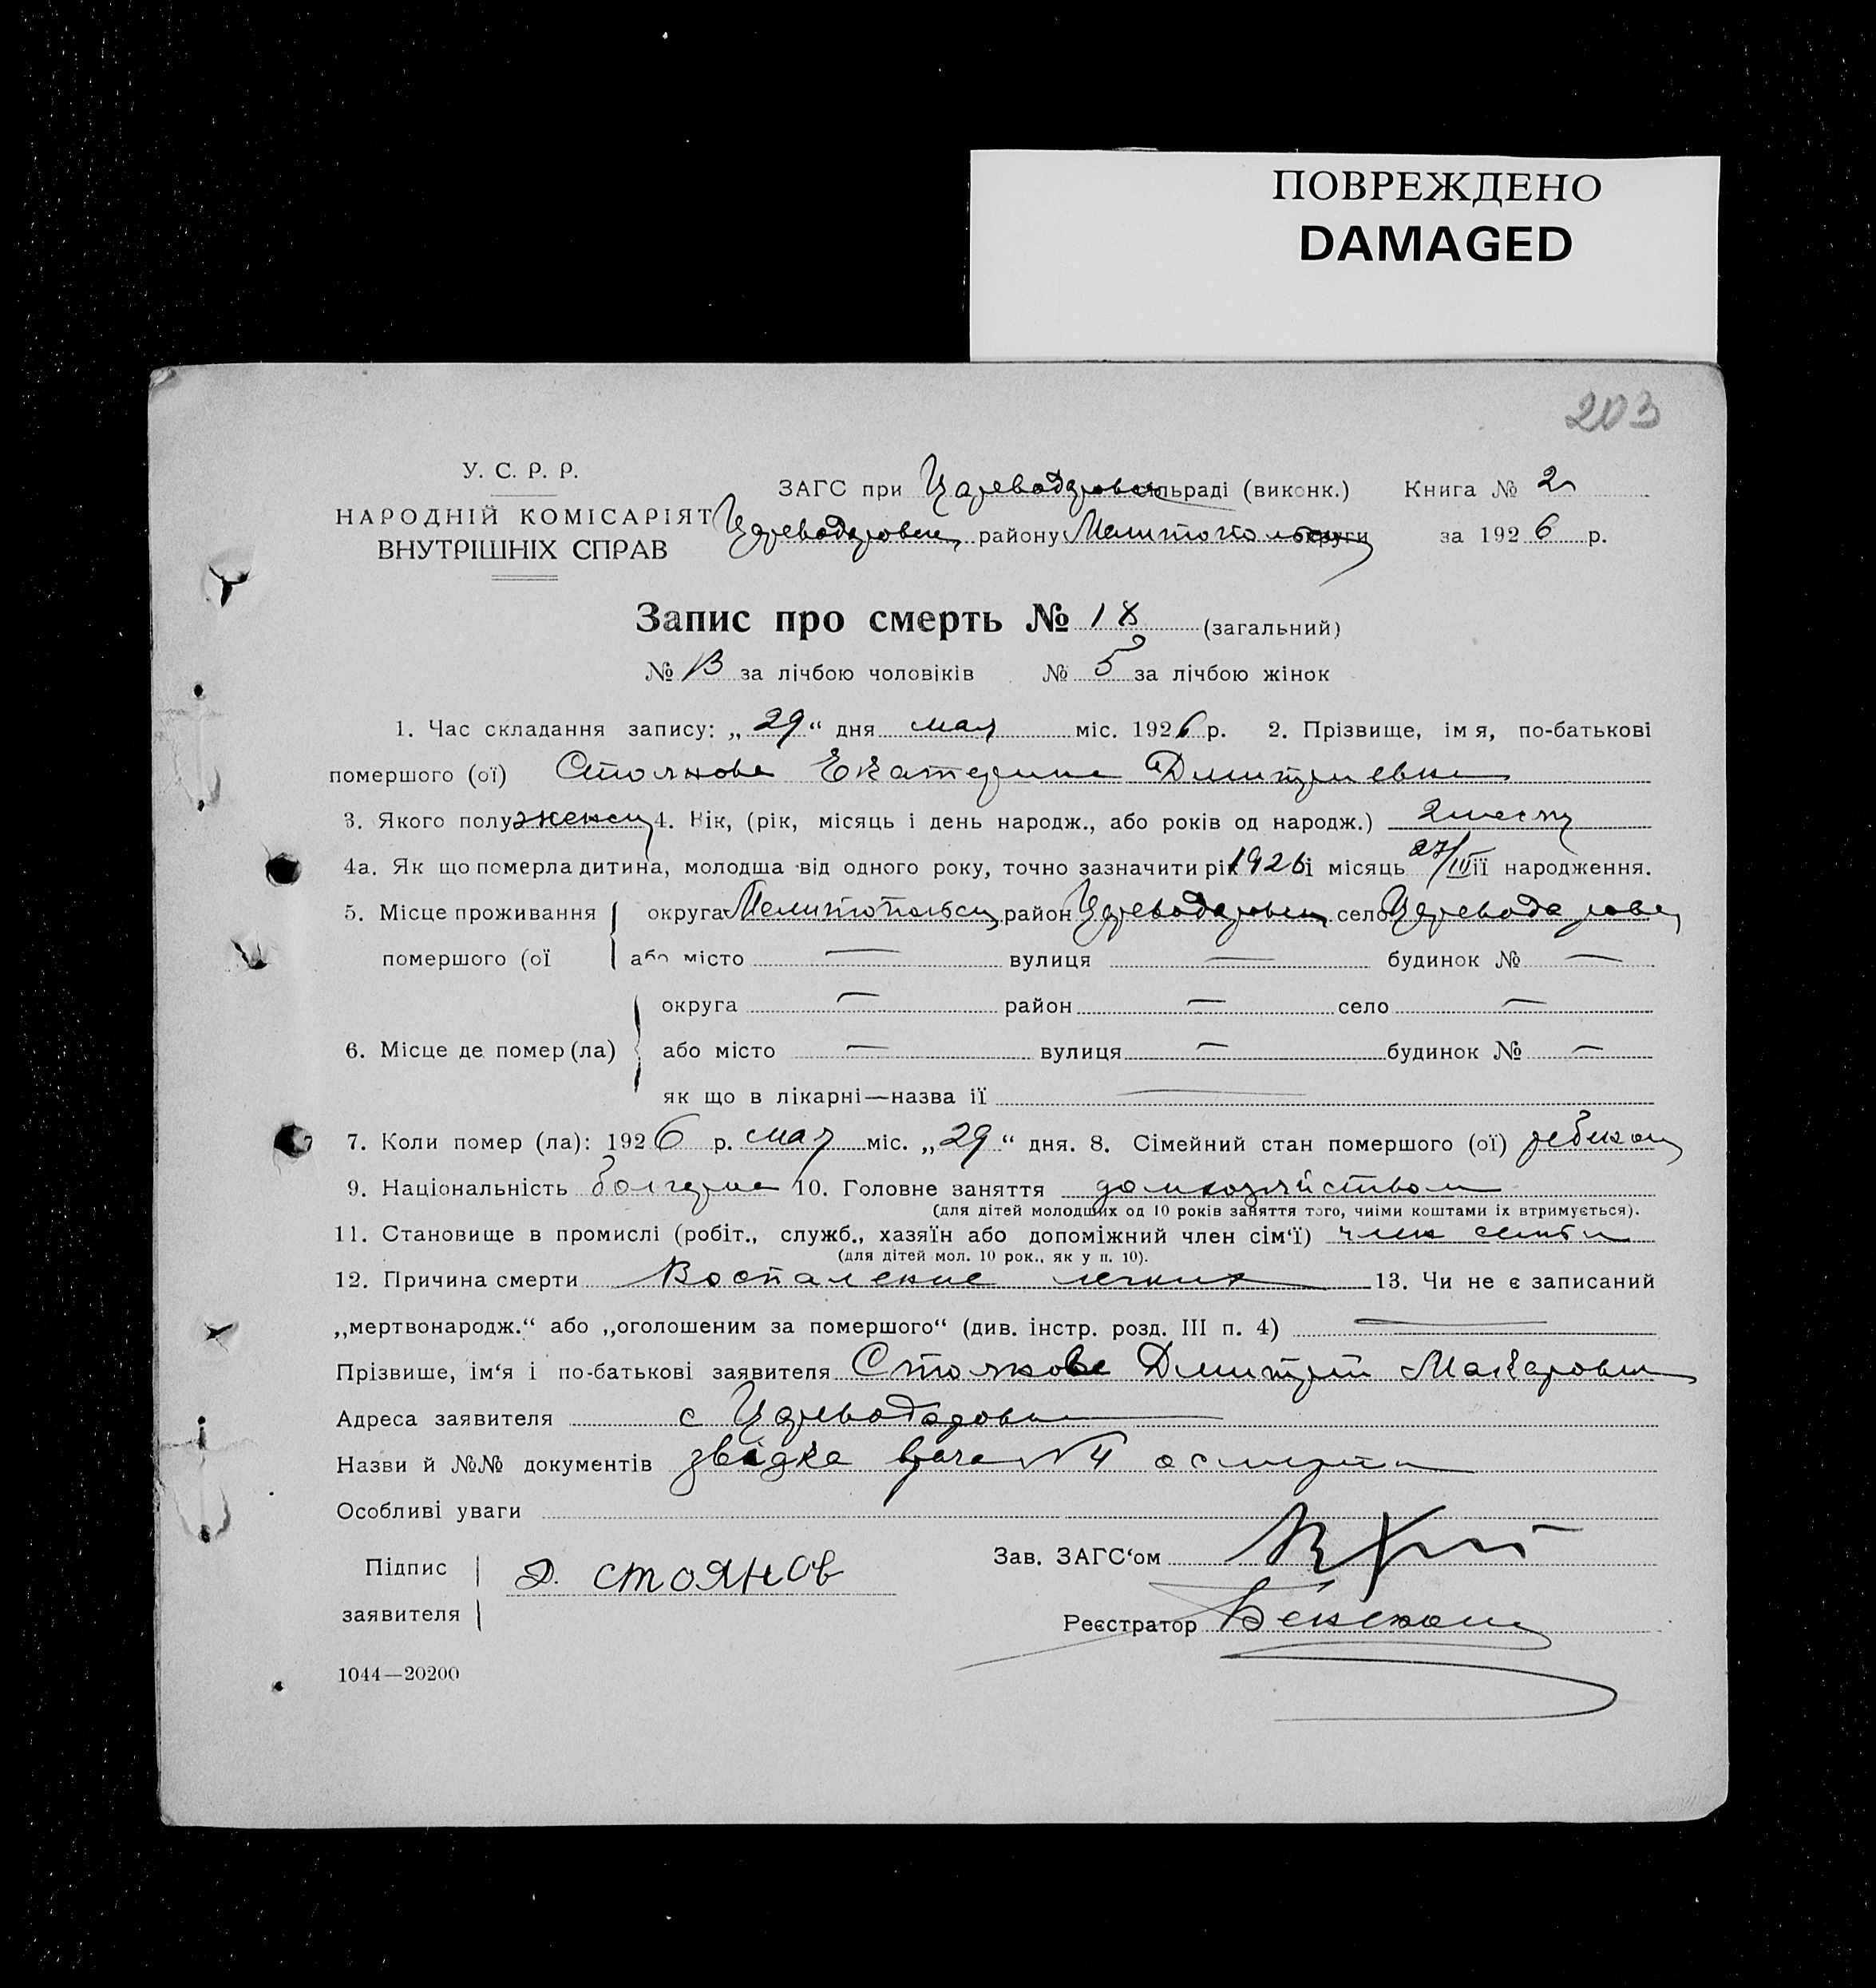 ПОВРЕЖДЕНО
DAMAGED
203
У. С. Р. Р.
НАРОДНІЙ КОМІСАРІЯТ
ВНУТРІШНІХ СПРАВ
ЗАГС при Цареводаровск сільраді (виконк.) Книга № 2
Цареводаровск району Мелитопольск округи за 1926 р.
Запис про смерть № 18 (загальний)
№ 13 за лічбою чоловіків № 5 за лічбою жінок
1. Час складання запису: „29“ дня мая міс. 1926 р. 2. Прізвище, імя, по-батькові
помершого (ої) Стоянова Екатерина Дмитриевна
3. Якого полу женск 4. Вік, (рік, місяць і день народж., або років од народж.) 2 месяц
4а. Як що померла дитина, молодша від одного року, точно зазначити рік 1926 і місяць 27/III її народження.
5. Місце проживання округа Мелитопольск район Цареводаровск село Цареводаровк
помершого (ої або місто — вулиця — будинок № —
округа — район — село —
6. Місце де помер (ла) або місто — вулиця — будинок № —
як що в лікарні—назва її —
7. Коли помер (ла): 1926 р. мая міс. „29“ дня. 8. Сімейний стан помершого (ої) ребенок
9. Національність болгарка 10. Головне заняття домхозяйством
(для дітей молодших од 10 років заняття того, чиїми коштами їх втримується).
11. Становище в промислі (робіт., служб., хазяїн або допоміжний член сім‘ї) член семьи
(для дітей мол. 10 рок., як у п. 10).
12. Причина смерти Воспаление легких 13. Чи не є записаний
„мертвонародж.“ або „оголошеним за помершого“ (див. інстр. розд. III п. 4) —
Прізвише, ім‘я і по-батькові заявителя Стоянов Дмитрий Макарович
Адреса заявителя с Цареводаровк
Назви й №№ документів звідка врача N 4 о смерти
Особливі уваги
Зав. ЗАГС‘ом
Підпис
заявителя Д. СТОЯНОВ
Реєстратор
1044—20200